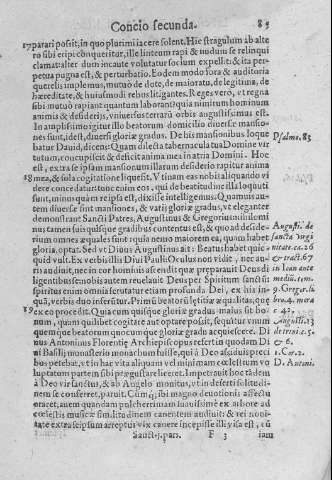 Concio secunda. 85
17 parari possit, in quo plurimi iacere solent. Hic stragulum ab alte
ro sibi eripi conqueritur, ille linteum rapi & nudum se relinqui
clamat: alter dum incaute volutatur socium expellit: & ita per-
petua pugna est, & perturbatio. Eodem modo fora & auditoria
querelis implemus, mutuo de dote, de maioratu, de legitima, de
hæreditate, & huiusmodi rebus litigātes. Reges, vero, et regna
sibi mutuò rapiant quantum laborant: quia nimirum hominum
animis & desiderijs, vniuersus terrarũ orbis augustissimus est.
In amplissimo igitur illo beatorum domicilio diuersæ mansio-
nes sunt, idest, diuersi gloriæ gradus. De his mansionibus loque
batur Dauid, dicens: Quam dilecta tabernacula tua Domine vir
tutum, concupiscit & deficit anima mea in atria Domini. Hoc
est, extra se ipsam mansionum illarum desiderio rapitur anima
18 mea, & sola cogitatione liquescit. Vtinam eas nobis aliquando vi
dere concedatur: tunc enim eos, qui de beatitudine illa loquuti
sunt, minus quàm res ipsa est, dixisse intelligemus. Quamuis au-
tem diuersæ sint mansiones, & varij gloriæ gradus, vt eleganter
demonstrant Sancti Patres, Augustinus & Gregorius nihilomi
nus; tamen suis quisque gradibus contentus est, & quo ad deside
rium omnes æquales sunt: quia nemo maiorem ea, quam habet
gloriã, optat. Sed vt Diuus Augustinus ait: Beatus habet quic-
quid vult. Ex verbis illis Diui Pauli: Oculus non vidit, nec au-
ris audiuit, nec in cor hominis ascendit quæ præparauit Deus di
ligentibus se: nobis autem reuelauit Deus per Spiritum suum:
spiritus enim omnia scrutatur etiam profunda Dei, ex his in-
quã, verbis duo inferuntur. Primũ beatorũ lętitiæ æqualitas, quę
19 ex eo procedit. Quia cum quisque gloriæ gradus maius sit bo-
num, quàm quilibet cogitare aut optare possit, sequitur vnum
quemque beatorum quocumque gloriæ gradu acquiescere. Di
uus Antoninus Florentię Archiepiscopus refert in quodam Di
ui Basilij monasterio monachum fuisse, qui à Deo assiduis preci
bus petebat, vt in hac vita aliquam vel minimam cœlestium vo
luptatum partem sibi prægustare liceret. Impetrauit hoc tādem
à Deo vir sanctus, & ab Angelo monitus, vt in deserti solitudi-
nem se conferret, paruit. Cum
cœlestis musicæ similitudinem canentem audiuit: & rei noui-
tate extra seipsum arreptus vix canere incepisse illi visa est, cũ
Psalmo. 83
Sanct. 1. pars. F 3 iam